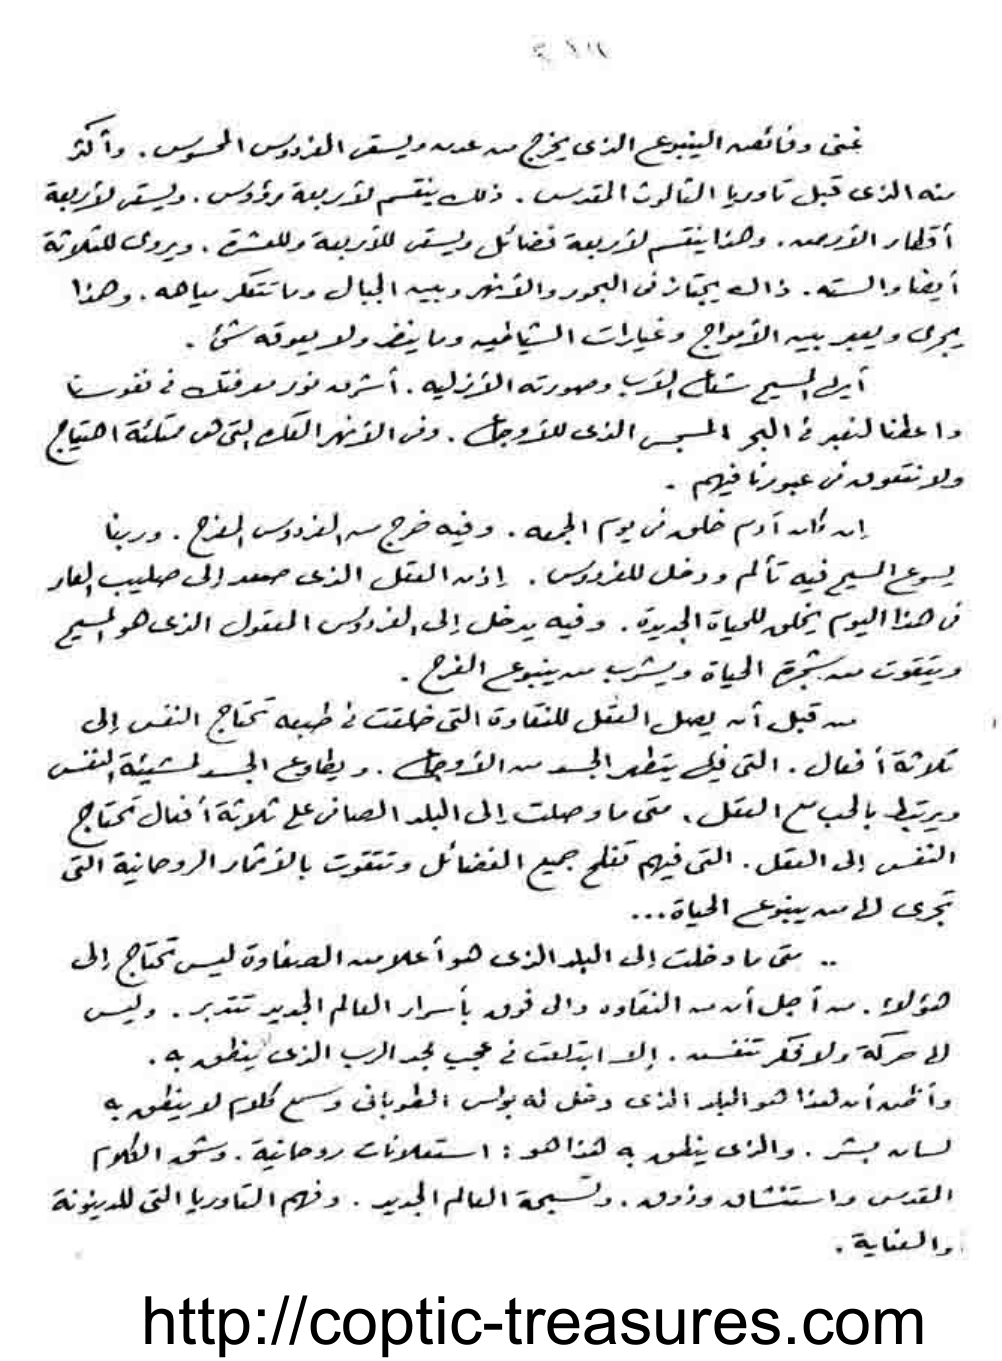 غنى وفائض الينبوع الذى يخرج من عدن ويسقى الفردوس المحسوس. وأكثر
منه الذى قبل تاوريا الثالوث المقدس. ذلك ينقسم لأربعة رؤوس. ويسقى لأربعة
أقطار الأرض. وهذا ينقسم لأربعة فضائل ويسقى للأربعة وللعشرة. ويروى للثلاثة
أيضا والسته. ذاك يجتاز فى البحور والأنهر وبين الجبال وما تتعكر مياهه. وهذا
يجرى ويعبر بين الأمواج وغيارات الشياطين وما ينضر ولا يعوقه شئ.
أيها المسيح شعاع الآب وصورته الأزلية. أشرق نور معرفتك فى نفوسنا
واعطنا لنعبر فى البحر السجس الذى للأوجاع. وفى الأنهر العكرة التى هى ممتلئة احتياج
ولا نتعوق فى عبورنا فيهم.
إن كان آدم خلق فى يوم الجمعه. وفيه خرج من الفردوس المفرح. وربنا
يسوع المسيح فيه تألم ودخل للفردوس. إذن العقل الذى صعد إلى صليب العار
فى هذا اليوم يخلق للحياة الجديدة. وفيه يدخل إلى الفردوس المعقول الذى هو المسيح
ويتقوت من شجرة الحياة ويشرب من ينبوع الفرح.
من قبل أن يصل العقل للنقاوة التى خلقت فى طبعه تحتاج النفس إلى
ثلاثة أفعال. التى فيها يتطهر الجسد من الأوجاع. ويطاوع الجسد لمشيئة النفس
ويرتبط بالحب مع العقل. متى ما وصلت إلى البلد الصافى على ثلاثة أفعال تحتاج
النفس إلى العقل. التى فيهم تفلح جميع الفضائل وتتقوت بالأثمار الروحانية التى
تجرى لها من ينبوع الحياة...
.. متى ما دخلت إلى البلد الذى هو أعلا من الصفاوة ليس تحتاج إلى
هؤلاء. من أجل أن من النقاوه والى فوق بأسرار العالم الجديد تتدبر. وليس
لها حركة ولا فكر تنفس. إلا ابتلعت فى عجب مجد الرب الذى لا ينطق به.
وأظن أن هذا هو البلد الذى دخل له بولس الطوبانى وسمع كلام لا ينطق به
لسان بشر. والذى ينطق به هذا هو: استعلانات روحانية. وشم الكلام
المقدس واستنشاق وذوق. وتسبحة العالم الجديد. وفهم التاوريا التى للدينونة
والعناية.
http://coptic-treasures.com